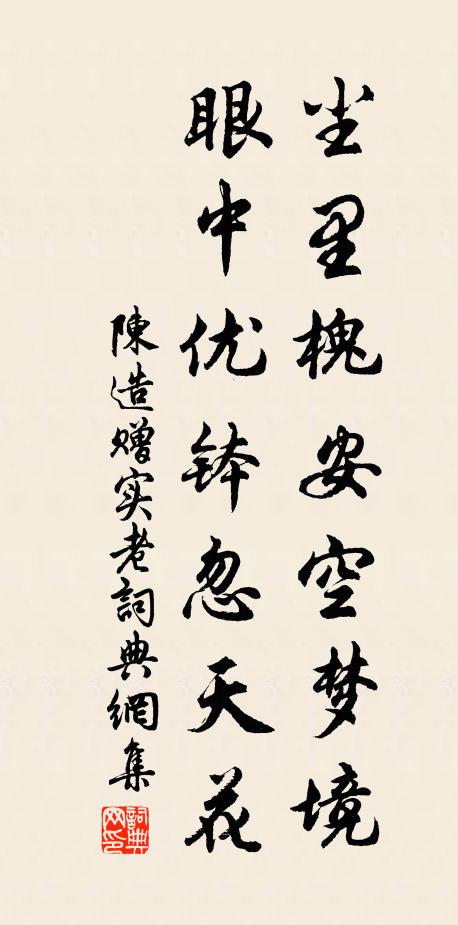 尘里槐安空梦境
眼中优钵忽天花
陳造赠实老詞典網集
詞典网印